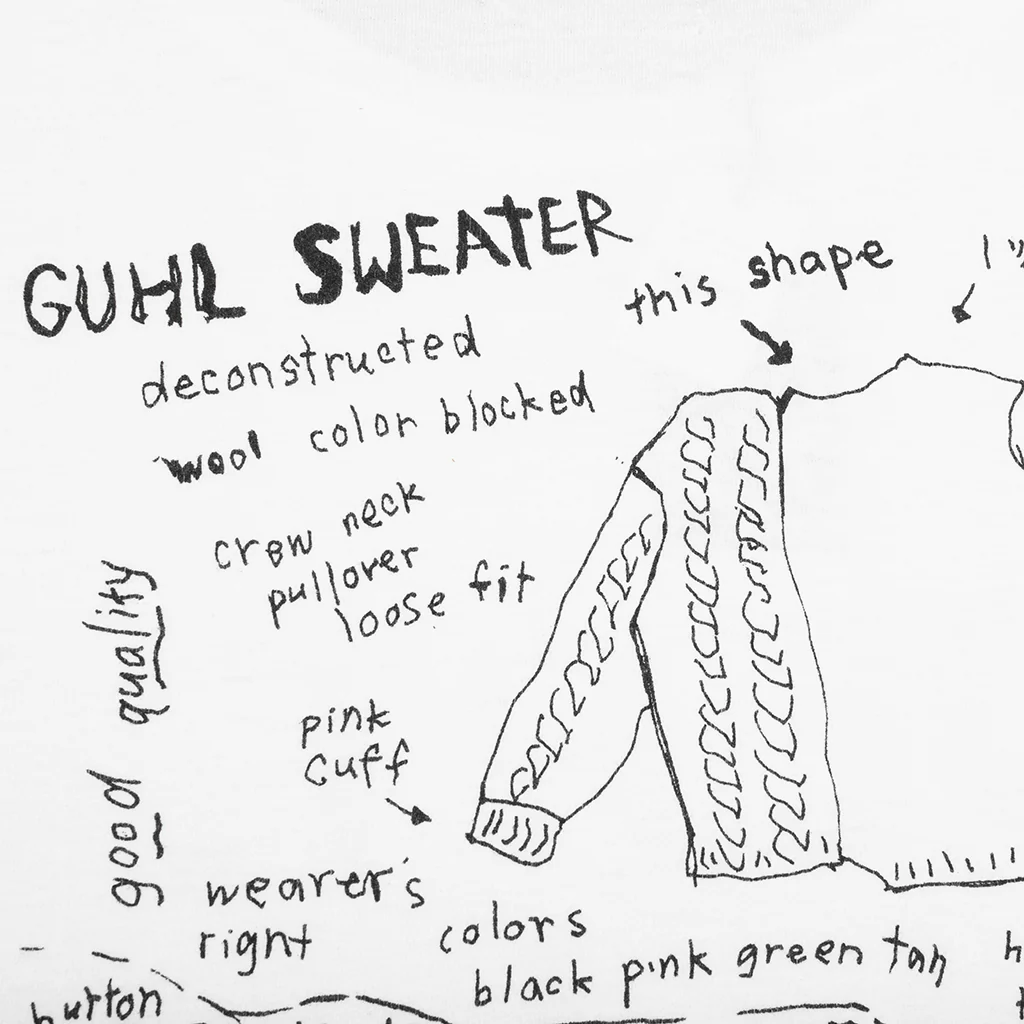 GUHL SWEATER
this shape
1"
deconstructed
wool color blocked
crew neck
pullover
loose fit
good quality
pink
cuff
wearer's
right
colors
black pink green tan
button